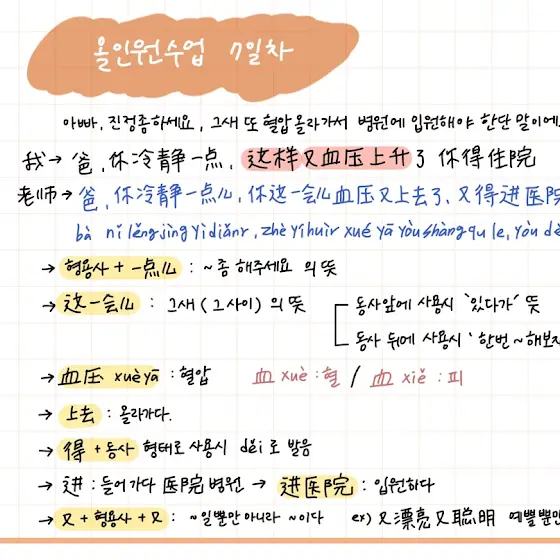 올인원수업 7일차
아빠, 진정좀하세요, 그새 또 혈압 올라가서 병원에 입원해야 한단 말이에
我→ 爸, 你冷静一点, 这样又血压上升了 你得住院
老师→ 爸, 你冷静一点儿, 你这一会儿血压又上去了, 又得进医院
bà nǐ lěngjìng yìdiǎnr, zhè yíhuìr xuè yā yòu shàng qu le, yòu dě
→ 형용사 + 一点儿 : ~좀 해주세요 의 뜻
→ 这一会儿 : 그새 (그사이) 의 뜻
동사앞에 사용시 '있다가' 뜻
동사 뒤에 사용시 '한번 ~해보자
→ 血压 xuèyā : 혈압 血 xuè : 혈 / 血 xiě : 피
→ 上去 : 올라가다.
→ 得 + 동사 형태로 사용시 děi 로 발음
→ 进 : 들어가다 医院 병원 → 进医院 : 입원하다
→ 又 + 형용사 + 又 : ~일뿐만 아니라 ~이다 ex) 又漂亮又聪明 예쁠뿐만